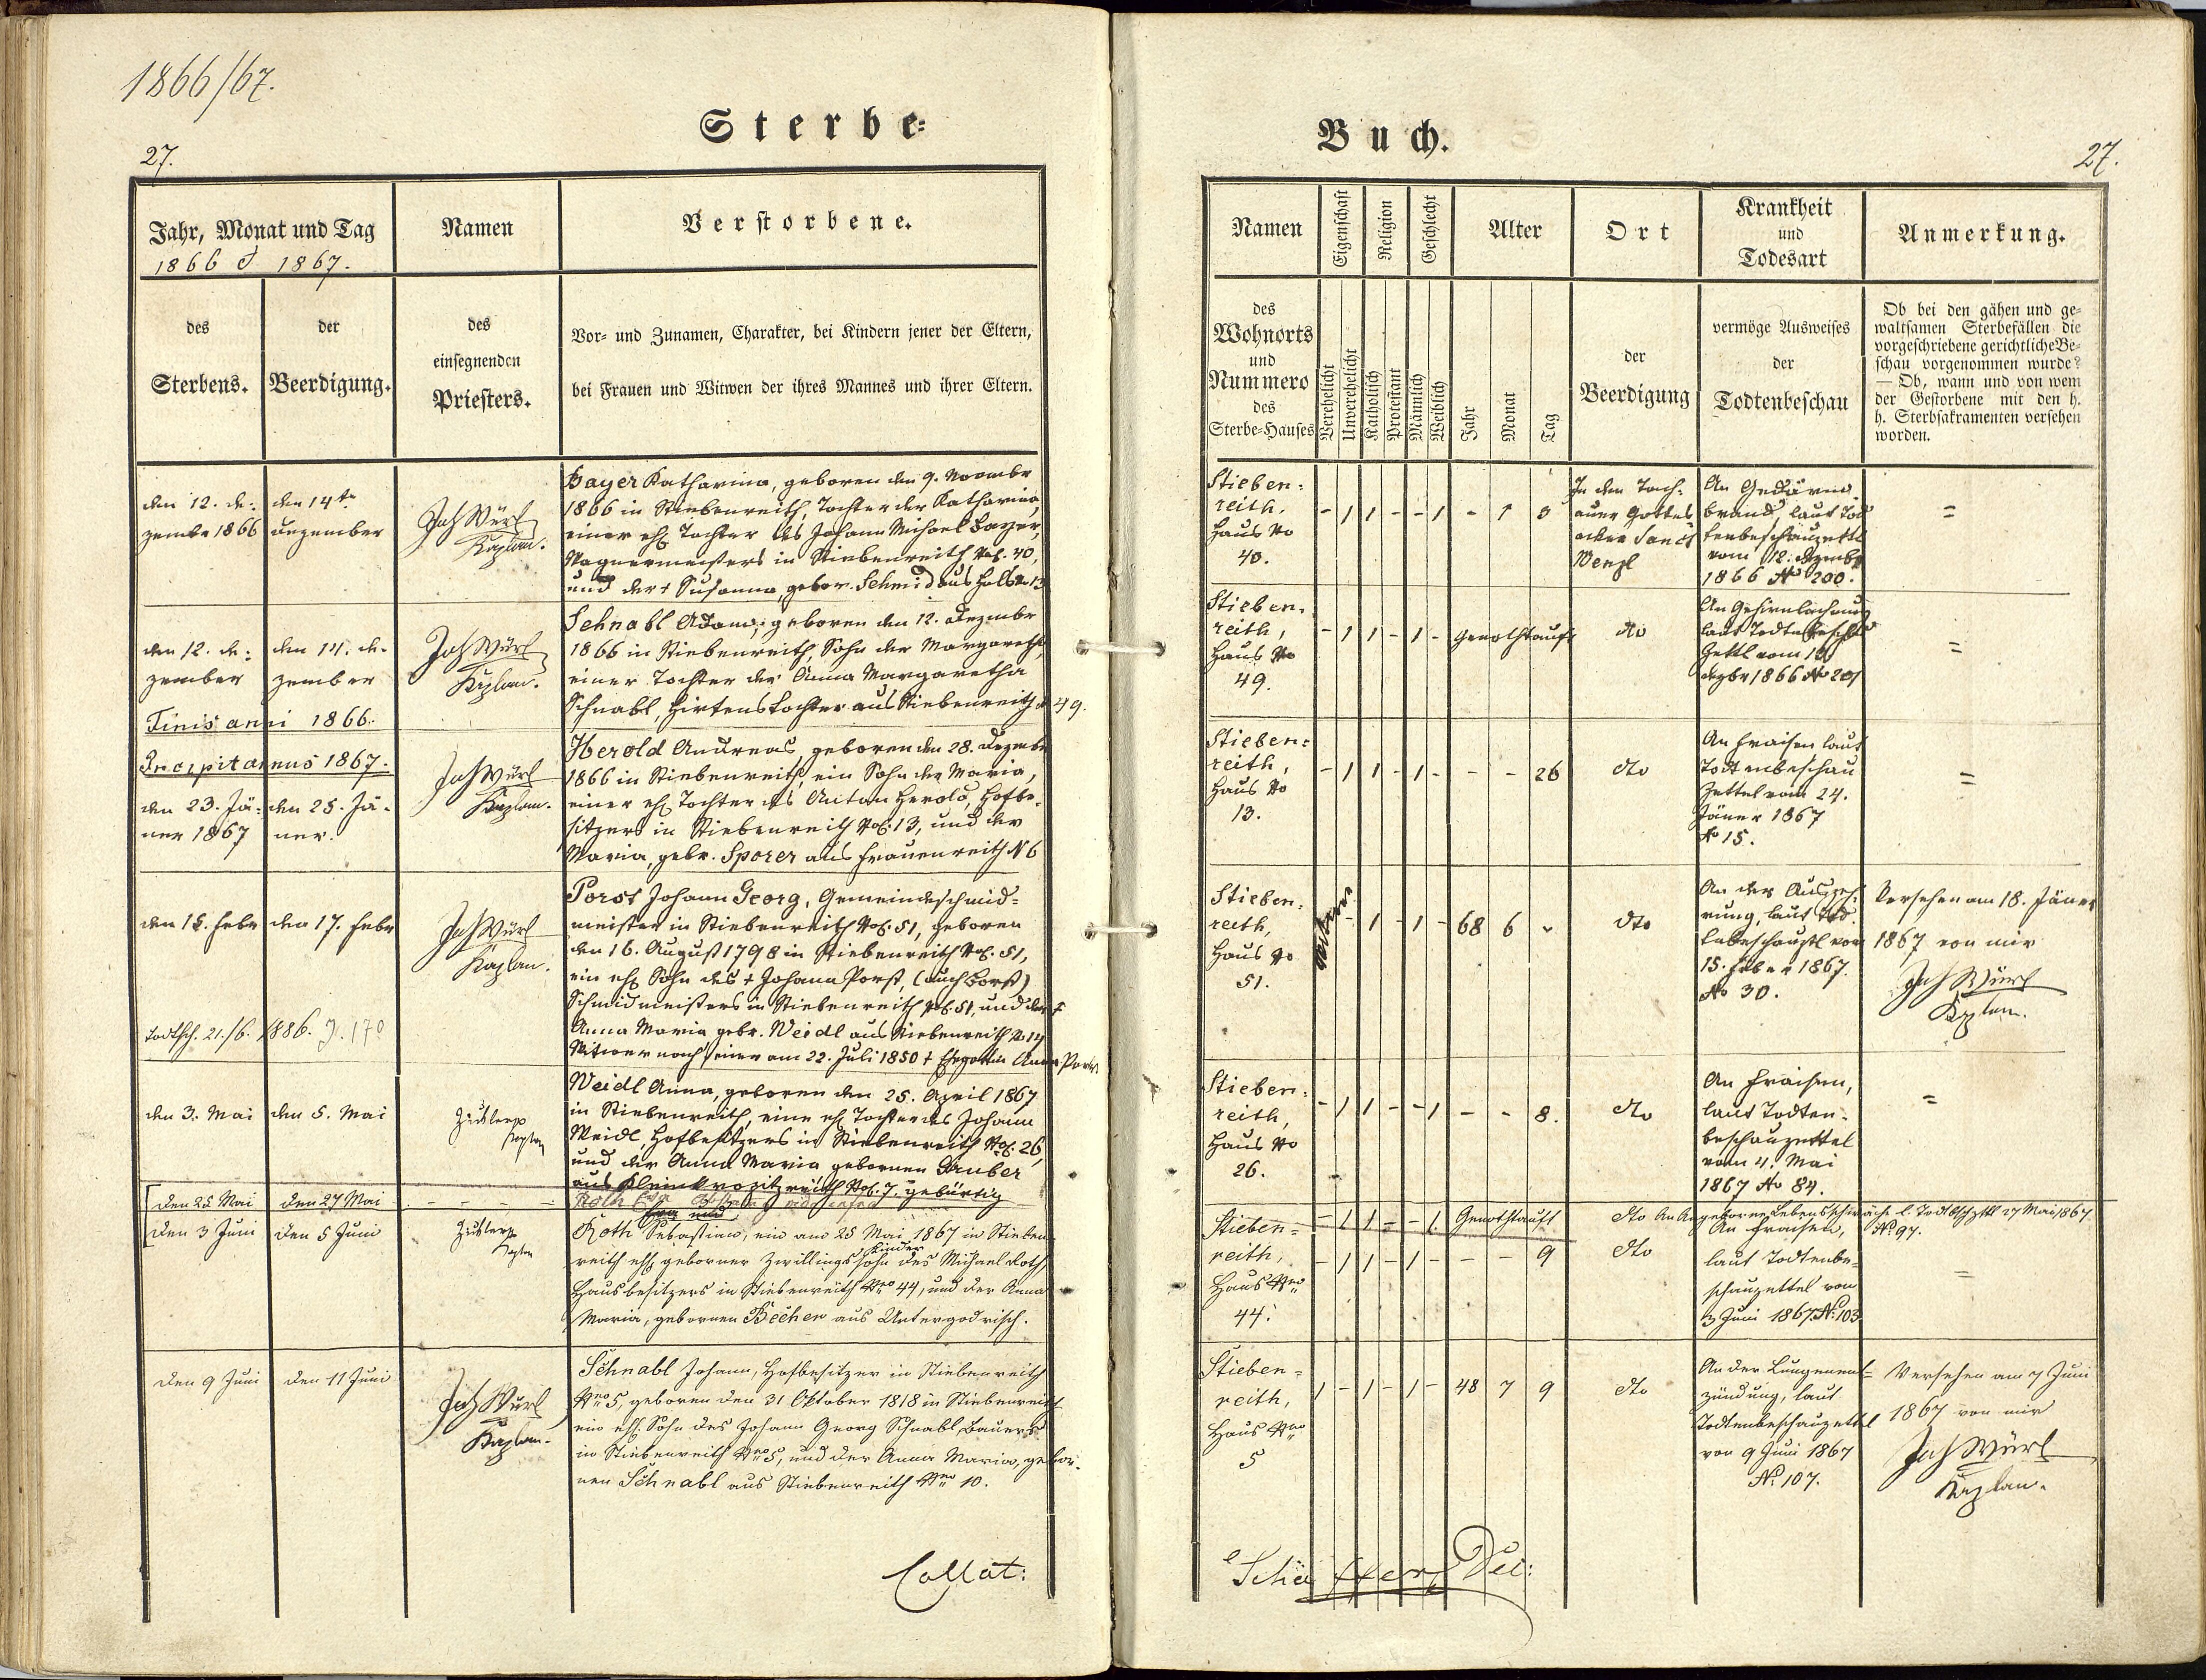 1866/67.
27.
Sterbe=
Jahr, Monat und Tag
1866 & 1867.
Namen
Verstorbene.
des
Sterbens.
der
Beerdigung.
des
einsegnenden
Priesters.
Vor= und Zunamen, Charakter, bei Kindern jener der Eltern,
bei Frauen und Witwen der ihres Mannes und ihrer Eltern.
den 12. De=
zember 1866
den 14te
Dezember
Joh Würl
Kaplan.
Bayer Katharina, geboren den 9. November
1866 in Stiebenreith, Tochter der Katharina,
einer ehl Tochter des Johann Michael Bayer,
Wagnermeisters in Stiebenreith No. 40,
und der † Susanna, gebor. Schmid aus Hals No 13
den 12. De=
zember
den 14. De=
zember
Joh Würl
Kaplan.
Schnabl Adam, geboren den 12. Dezember
1866 in Stiebenreith, Sohn der Margaretha,
einer Tochter der Anna Margaretha
Schnabl, Hirtenstochter aus Stiebenreith N 49.
Finis anni 1866.
Incipit annus 1867.
den 23. Jä=
ner 1867
den 25. Jä=
ner.
Joh Würl
Kaplan.
Herold Andreas, geboren den 28. Dezember
1866 in Stiebenreith, ein Sohn der Maria,
einer ehl Tochter des Anton Herold, Hofbe=
sitzers in Stiebenreith No. 13, und der
Maria, gebr. Sporer aus Frauenreith N 6
den 15. Febr
den 17. Febr
Joh Würl
Kaplan.
Porst Johann Georg, Gemeindeschmid=
meister in Stiebenreith No. 51, geboren
den 16. August 1798 in Stiebenreith No. 51,
ein ehl Sohn des † Johann Porst, (auch Borst)
Schmidmeisters in Stiebenreith No. 51, und der †
Anna Maria gebr. Weidl aus Stiebenreith No 14
Witwer nach seiner am 22. Juli 1850 † Ehegattin Anna Porst
Todtsch. 21./6. 1886. J. 170
den 3. Mai
den 5. Mai
Kaplan
Weidl Anna, geboren den 25. April 1867
in Stiebenreith, eine ehl Tochter des Johann
Weidl, Hofbesitzers in Stiebenreith No. 26,
und der Anna Maria gebornen Gruber
aus No. 7 gebürtig
den 25 Mai
den 27 Mai
Roth
den 3 Juni
den 5 Juni
Kaplan
Roth Sebastian, ein am 25 Mai 1867 in Stieben
Kinder
reith ehl geborner Zwillingssohn des Michael Roth,
Hausbesitzers in Stiebenreith Nro 44, und der Anna
Maria, gebornen Becher aus Untergodrisch.
den 9 Juni
den 11 Juni
Joh Würl
Kaplan.
Schnabl Johann, Hofbesitzer in Stiebenreith
Nro 5, geboren den 31 Oktober 1818 in Stiebenreith
ein ehl. Sohn des Johann Georg Schnabl, Bauers
in Stiebenreith Nro 5, und der Anna Maria, gebor=
nen Schnabl aus Stiebenreith Nro 10.
Collat:
Buch.
27.
Namen
Eigenschaft
Religion
Geschlecht
Alter
Ort
Krankheit
und
Todesart
Anmerkung.
des
Wohnorts
und
Nummero
des
Sterbe=Hauses
Verehelicht
Unverehelicht
Katholisch
Protestant
Männlich
Weiblich
Jahr
Monat
Tag
der
Beerdigung
vermöge Ausweises
der
Todtenbeschau
Ob bei den gähen und ge=
waltsamen Sterbefällen die
vorgeschriebene gerichtliche Be=
schau vorgenommen wurde?
— Ob, wann und von wem
der Gestorbene mit den h.
h. Sterbsakramenten versehen
worden.
Stieben=
reith,
Haus No
40.
- 1 1 - - 1 - 1 3
In dem Tach=
auer Gottes
acker Sanct
Wenzl
An Gedärm
brand laut Tod
tenbeschauzettl
vom 12. Dezember
1866 No 200.
=
Stieben=
reith,
Haus No
49.
- 1 1 - 1 - Genothtauft
dto
An
laut Todtenbeschau
Zettl vom 12
Dezbr 1866 No 201
=
Stieben=
reith,
Haus No
13.
- 1 1 - 1 - - - 26
dto
An Fraisen laut
Todtenbeschau
Zettel vom 24.
Jäner 1867
No 15.
=
Stieben=
reith,
Haus No
51.
Witwer - 1 - 1 - 68 6 -
dto
An der Auszeh=
rung, laut Tod
tenbeschauztl vom
15. Feber 1867.
No 30.
Versehen am 18. Jäner
1867 von mir
Joh Würl
Kaplan.
Stieben=
reith,
Haus No
26.
- 1 1 - - 1 - - 8.
dto
An Fraisen,
laut Todten=
beschauzettel
vom 4. Mai
1867 No 84.
=
- 1 1 - - 1 Genothtauft
dto An Angeborne Lebensschwäche l. Todtbschzttl 27 Mai 1867
No 97.
Stieben=
reith,
Haus Nro
44.
- 1 1 - 1 - - - 9
dto
An Fraisen,
laut Todtenbe=
schauzettel vom
3 Juni 1867. No 103
=
Stieben=
reith,
Haus Nro
5
1 - 1 - 1 - 48 7 9
dto
An der Lungenent=
zündung, laut
Todtenbeschauzettel
von 9 Juni 1867
No 107.
Versehen am 7 Juni
1867 von mir
Joh Würl
Kaplan.